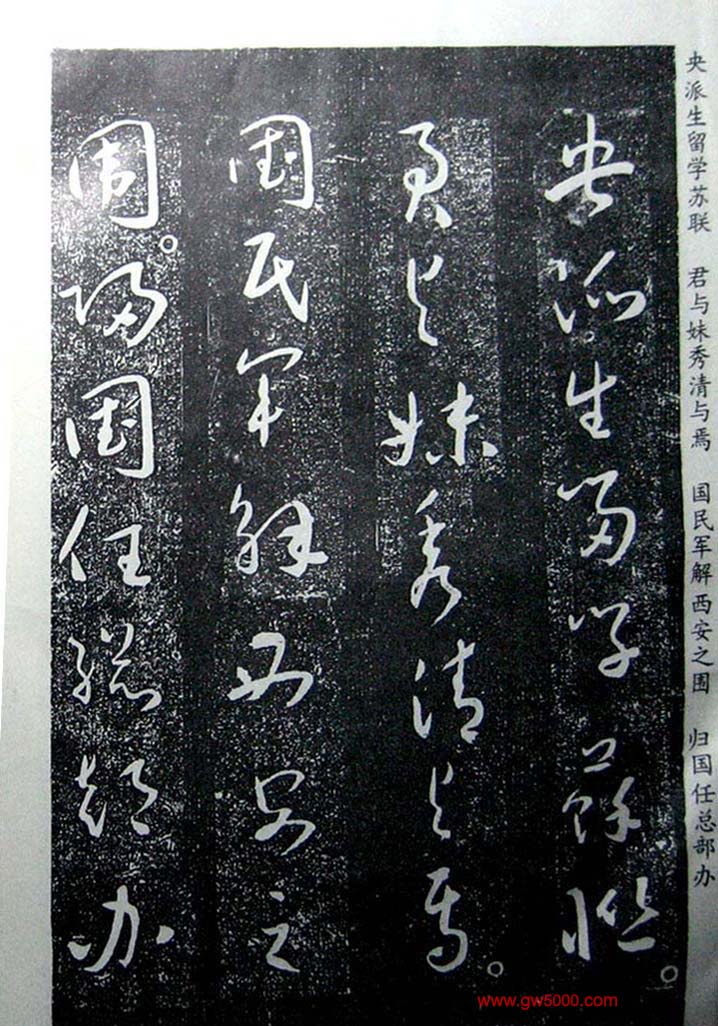 央派生留学苏联 君与妹秀清与焉 国民军解西安之围 归国任总部办
央派生留学苏联。
君与妹秀清与焉。
国民军解西安之
围。归国任总部办
www.gw5000.com